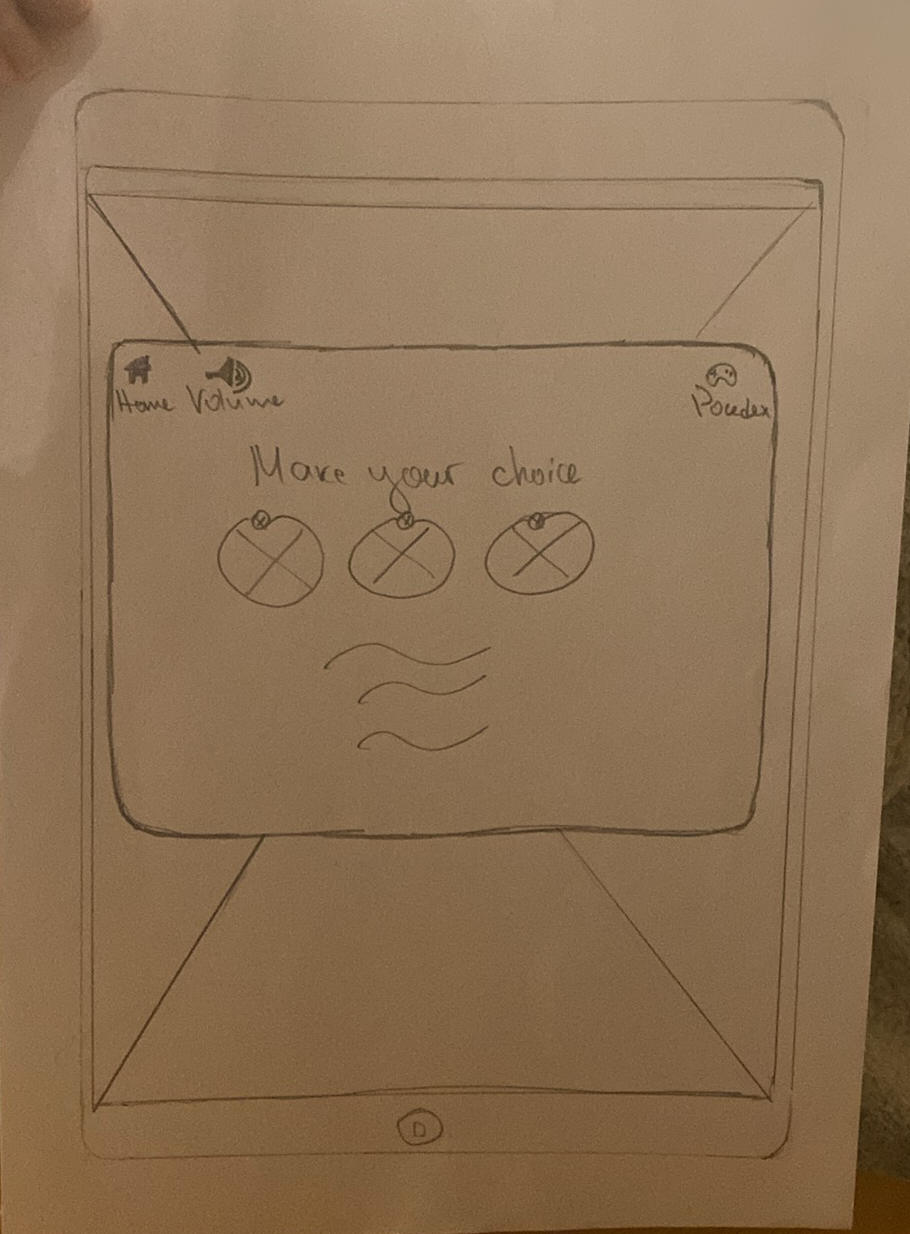 Home Volume
Poudex
Make your choice
D